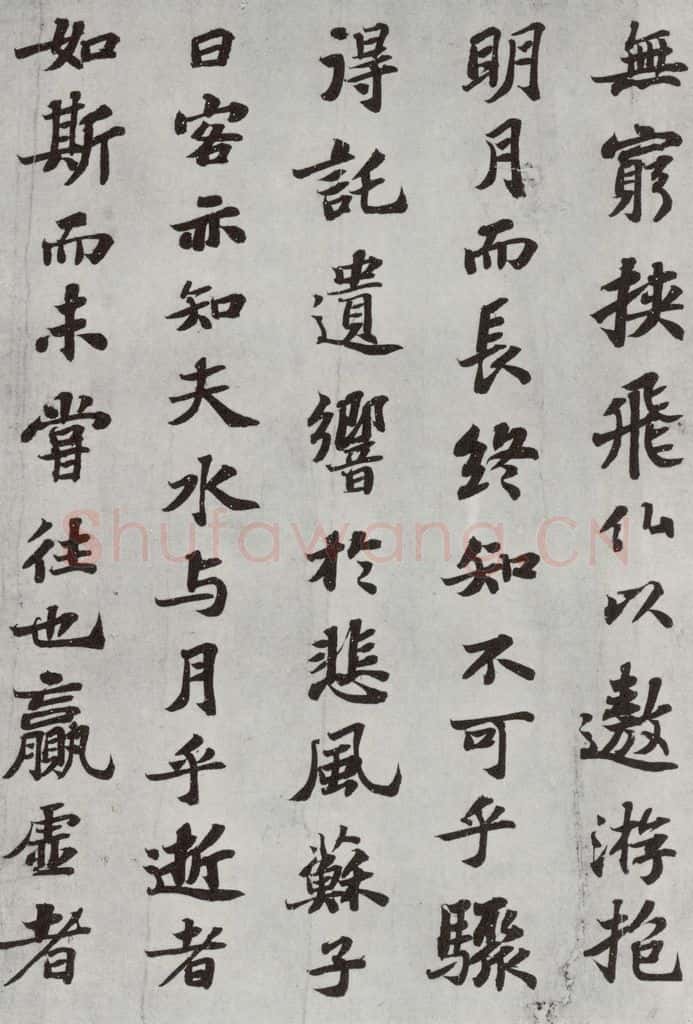 無窮挾飛仙以遨游抱
明月而長終知不可乎驟
得託遺響於悲風蘇子
曰客亦知夫水与月乎逝者
如斯而未嘗往也贏虛者
Shufawang.CN